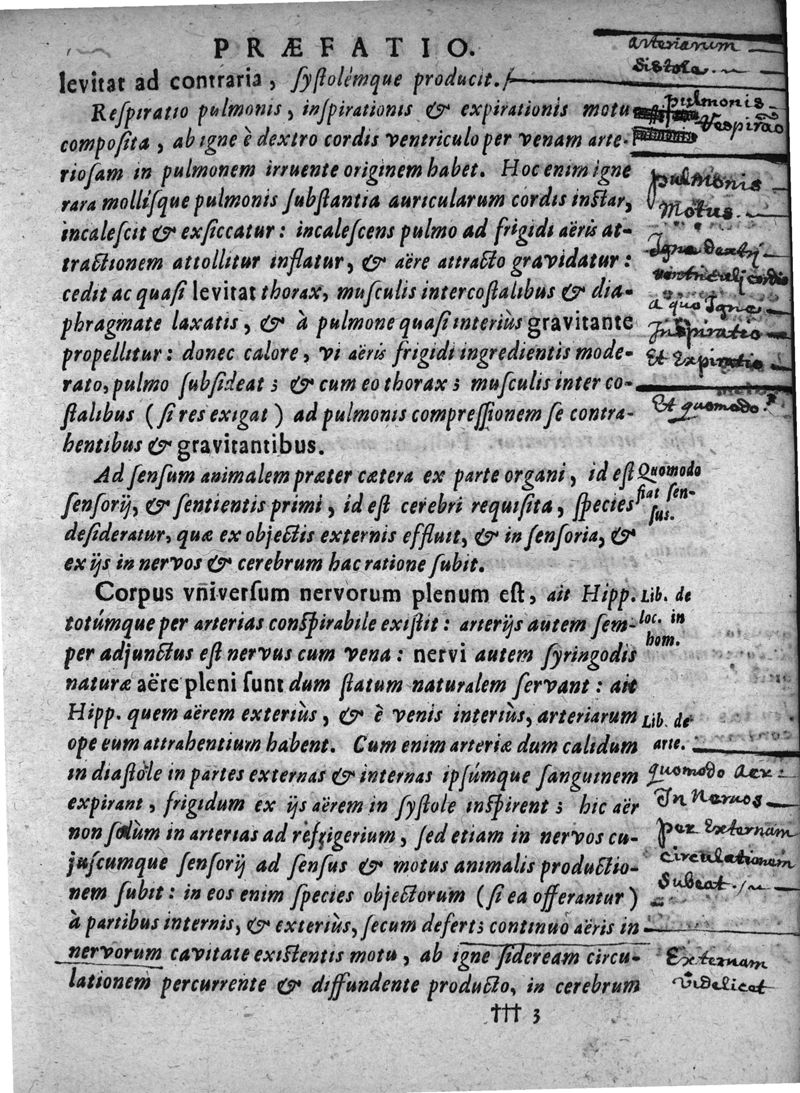 PRÆFATIO.
levitat ad contraria, ſyſtolémque producit.
Reſpiratio pulmonis, inſpirationis & expirationis motu
compoſita, ab igne è dextro cordis ventriculo per venam arte-
rioſam in pulmonem irruente originem habet. Hoc enim igne
rara molliſque pulmonis ſubſtantia auricularum cordis inſtar,
incaleſcit & exſiccatur: incaleſcens pulmo ad frigidi aëris at-
tractionem attollitur inflatur, & aëre attracto gravidatur:
cedit ac quaſi levitat thorax, muſculis intercoſtalibus & dia-
phragmate laxatis, & à pulmone quaſi interiùs gravitante
propellitur: donec calore, vi aëris frigidi ingredientis mode-
rato, pulmo ſubſideat; & cum eo thorax; muſculis inter co-
ſtalibus (ſi res exigat) ad pulmonis compreſſionem ſe contra-
hentibus & gravitantibus.
Ad ſenſum animalem præter cætera ex parte organi, id eſt
ſenſorij, & ſentientis primi, id eſt cerebri requiſita, ſpecies
deſideratur, quæ ex objectis externis effluit, & in ſenſoria, &
ex ijs in nervos & cerebrum hac ratione ſubit.
Corpus vniverſum nervorum plenum eſt, ait Hipp.
totúmque per arterias conſpirabile exiſtit: arterijs autem ſem-
per adjunctus eſt nervus cum vena: nervi autem ſyringodis
naturæ aëre pleni ſunt dum ſtatum naturalem ſervant: ait
Hipp. quem aërem exteriùs, & è venis interiùs, arteriarum
ope eum attrahentium habent. Cum enim arteriæ dum calidum
in diaſtole in partes externas & internas ipſúmque ſanguinem
expirant, frigidum ex ijs aërem in ſyſtole inſpirent; hic aër
non ſolùm in arterias ad refrigerium, ſed etiam in nervos cu-
juſcumque ſenſorij ad ſenſus & motus animalis productio-
nem ſubit: in eos enim ſpecies objectorum (ſi ea offerantur)
à partibus internis, & exteriùs, ſecum defert; continuò aëris in
nervorum cavitate exiſtentis motu, ab igne ſideream circu-
lationem percurrente & diffundente producto, in cerebrum
††† 3
arteriarum
Sistole.
pulmonis
Respirāo
pulmonis
Motus.
Igne dextri
ventriculi cordis
a quo Igne
Inspiratio
Et Expiratio
Et quomodo?
Quomodo
fiat ſen-
ſus.
Lib. de
loc. in
hom.
Lib. de
arte.
quomodo Aer
In Nervos
per Externam
circulationem
Subeat.
Externam
videlicet